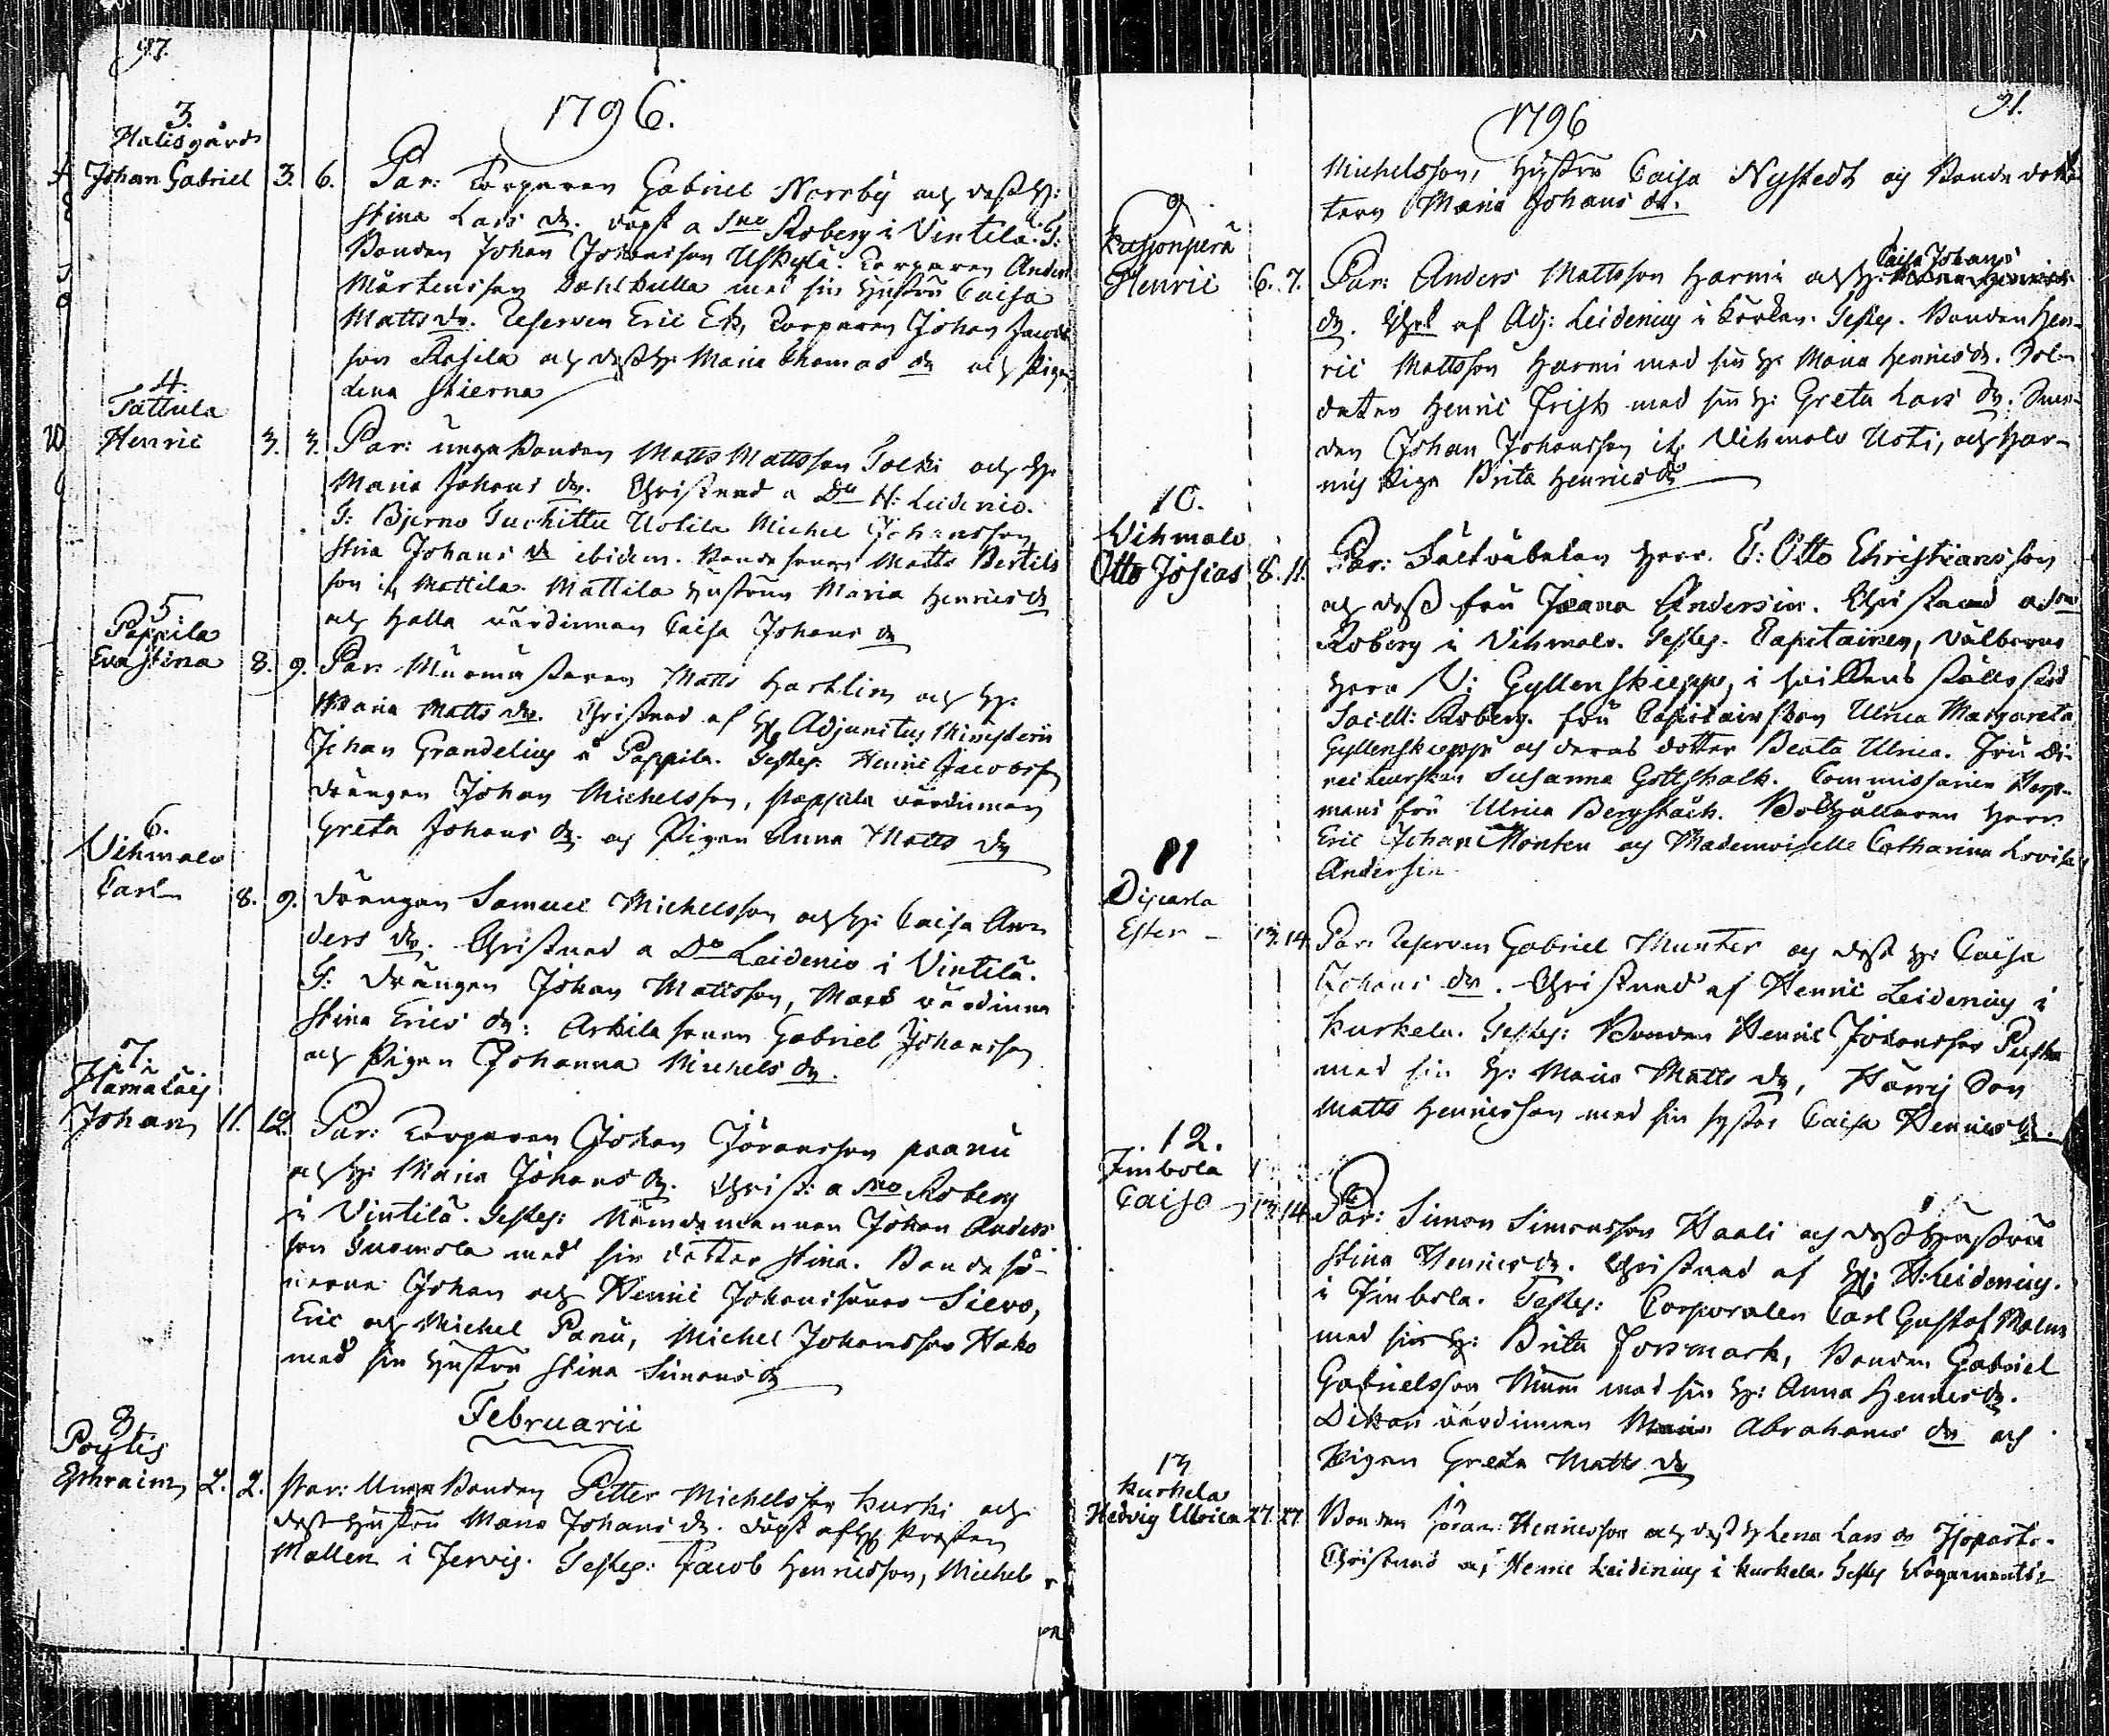 97.
1796.
3.
Halisgård
Johan Gabriel 3. 6. Par: Torparen Gabriel Norrby och dess H:
Stina Lars dr. döpt a Sno Roberg i Vintelä. T:
Bonden Johan Johansson Uskylä. Torparen Anders
Mårtensson Dahlkulla med sin Hustru Caisa
Matts dr. Reserven Eric Ek, Torparen Johan Jacobs
son Rosila och dess H: Maria Thomas dr och Pigan
Lena Stierna
4.
Tattula
Henric 3. 3. Par: unga Bonden Matts Mattsson Tolki och H:
Maria Johans dr. Christnad a Do H: Leidenio.
T: Bjerno Tuohittu Uotila Michel Johansson
Stina Johans dr ibidem. Bondesonen Matts Bertils
son if. Mattila. Mattila hustrun Maria Henrics dr
och Halla värdinnan Caisa Johans dr
5
Pappila
Eva Stina 8. 9. Par: Murmästaren Matts Hartlin och H:
Maria Matts dr. Christnad af H Adjunctus Ministerii
Johan Grandelius i Pappila. Testes: Henric Jacobsson
Drängen Johan Michelsson, Pappila värdinnan
Greta Johans dr. och Pigan Anna Matts dr
6.
Vihmalo
Carl 8. 9. Drängen Samuel Michelsson och H: Caisa An
ders dr. Christnad a Do Leidenio i Vintelä.
T: Drängen Johan Mattsson, värdinna
Stina Erics dr: Arkila sonen Gabriel Johansson
och Pigan Johanna Michels dr.
7.
Hämäläis
Johan 11. 12. Par: Torparen Johan Jöransson paanu
och H: Maria Johans dr. Christ: a Sno Roberg
i Vintilä. Testes: Nämndemannen Johan Anders
son Suomela med sin dotter Stina. Bondesö-
nerne Johan och Henric Johanssöner Sievo,
Eric och Michel Panu, Michel Johansson Hako
med sin Hustru Stina Simons dr
Februarii
8
Pöytis
Ephraim 2. 2. Par: Unga Bonden Petter Michelsson Kurki och
dess Hustru Maria Johans dr. döpt af H Prosten
Mollen i Jervis. Testes: Jacob Henricsson, Michel
1796
91.
Michelsson, Hustru Caisa Nystedt och Bonde dot-
tern Maria Johans dr.
9
Henric 6. 7. Par: Anders Mattsson Harmi och H: Caisa Johans
dr. Christ af Adj: Leidenius i Körkan. Testes. Bonden Hen-
ric Mattsson Harmi med sin H: Maria Henrics dr. Sol-
daten Henric Frisk med sin H: Greta Lars dr. Bon-
den Johan Johansson if. Vihmalo Uoti, och Har-
mis Piga Brita Henrics dr
10.
Vihmalo
Otto Josias 8. 11. Par: Fältväbelen Herr. E: Otto Christiansson
och dess fru Joana Andersin. Christnad a Sno
Roberg i Vihmalo. Testes. Capitainen, Välborne
Herr V: Gyllenskiepp, i hvilkens ställe stod
Sacell: Roberg. fru Capitainskan Ulrica Margareta
Gyllenskiepp och deras dotter Beata Ulrica. Fru Di-
recteurskan Susanna Gottskalk. Commissarien
fru Ulrica Bergstäch. Bokhållaren Herr
Eric Johan Monten och Mademoiselle Catharina Lovisa
Andersin
11
Diparla
Ester 13. 14. Par: Reserven Gabriel Munter och dess H: Caisa
Johans dr. Christnad af Henric Leidenius i
Kurkela. Testes: Bonden Henric Johansson
med sin H: Maria Matts dr, Son
Matts Henricsson med sin syster Caisa Henrics dr.
12.
Jimbola
Caisa 13. 14. Par: Simon Simonsson Haali och dess Hustru
Stina Henrics dr. Christnad af H: H: Leidenius
i Jimbola. Testes: Corporalen Carl Gustaf Malm
med sin H: Brita Forsmark, Bonden Gabriel
Gabrielsson med sin H: Anna Henrics dr.
Dikars värdinnan Maria Abrahams dr och
Pigan Greta Matts dr
13
Kurkela
Hedvig Ulrica 27. 27 Bonden Jöran Henricsson och dess H Lena Lars dr Isoparta.
Christnad af Henric Leidenius i Kurkela. Testes